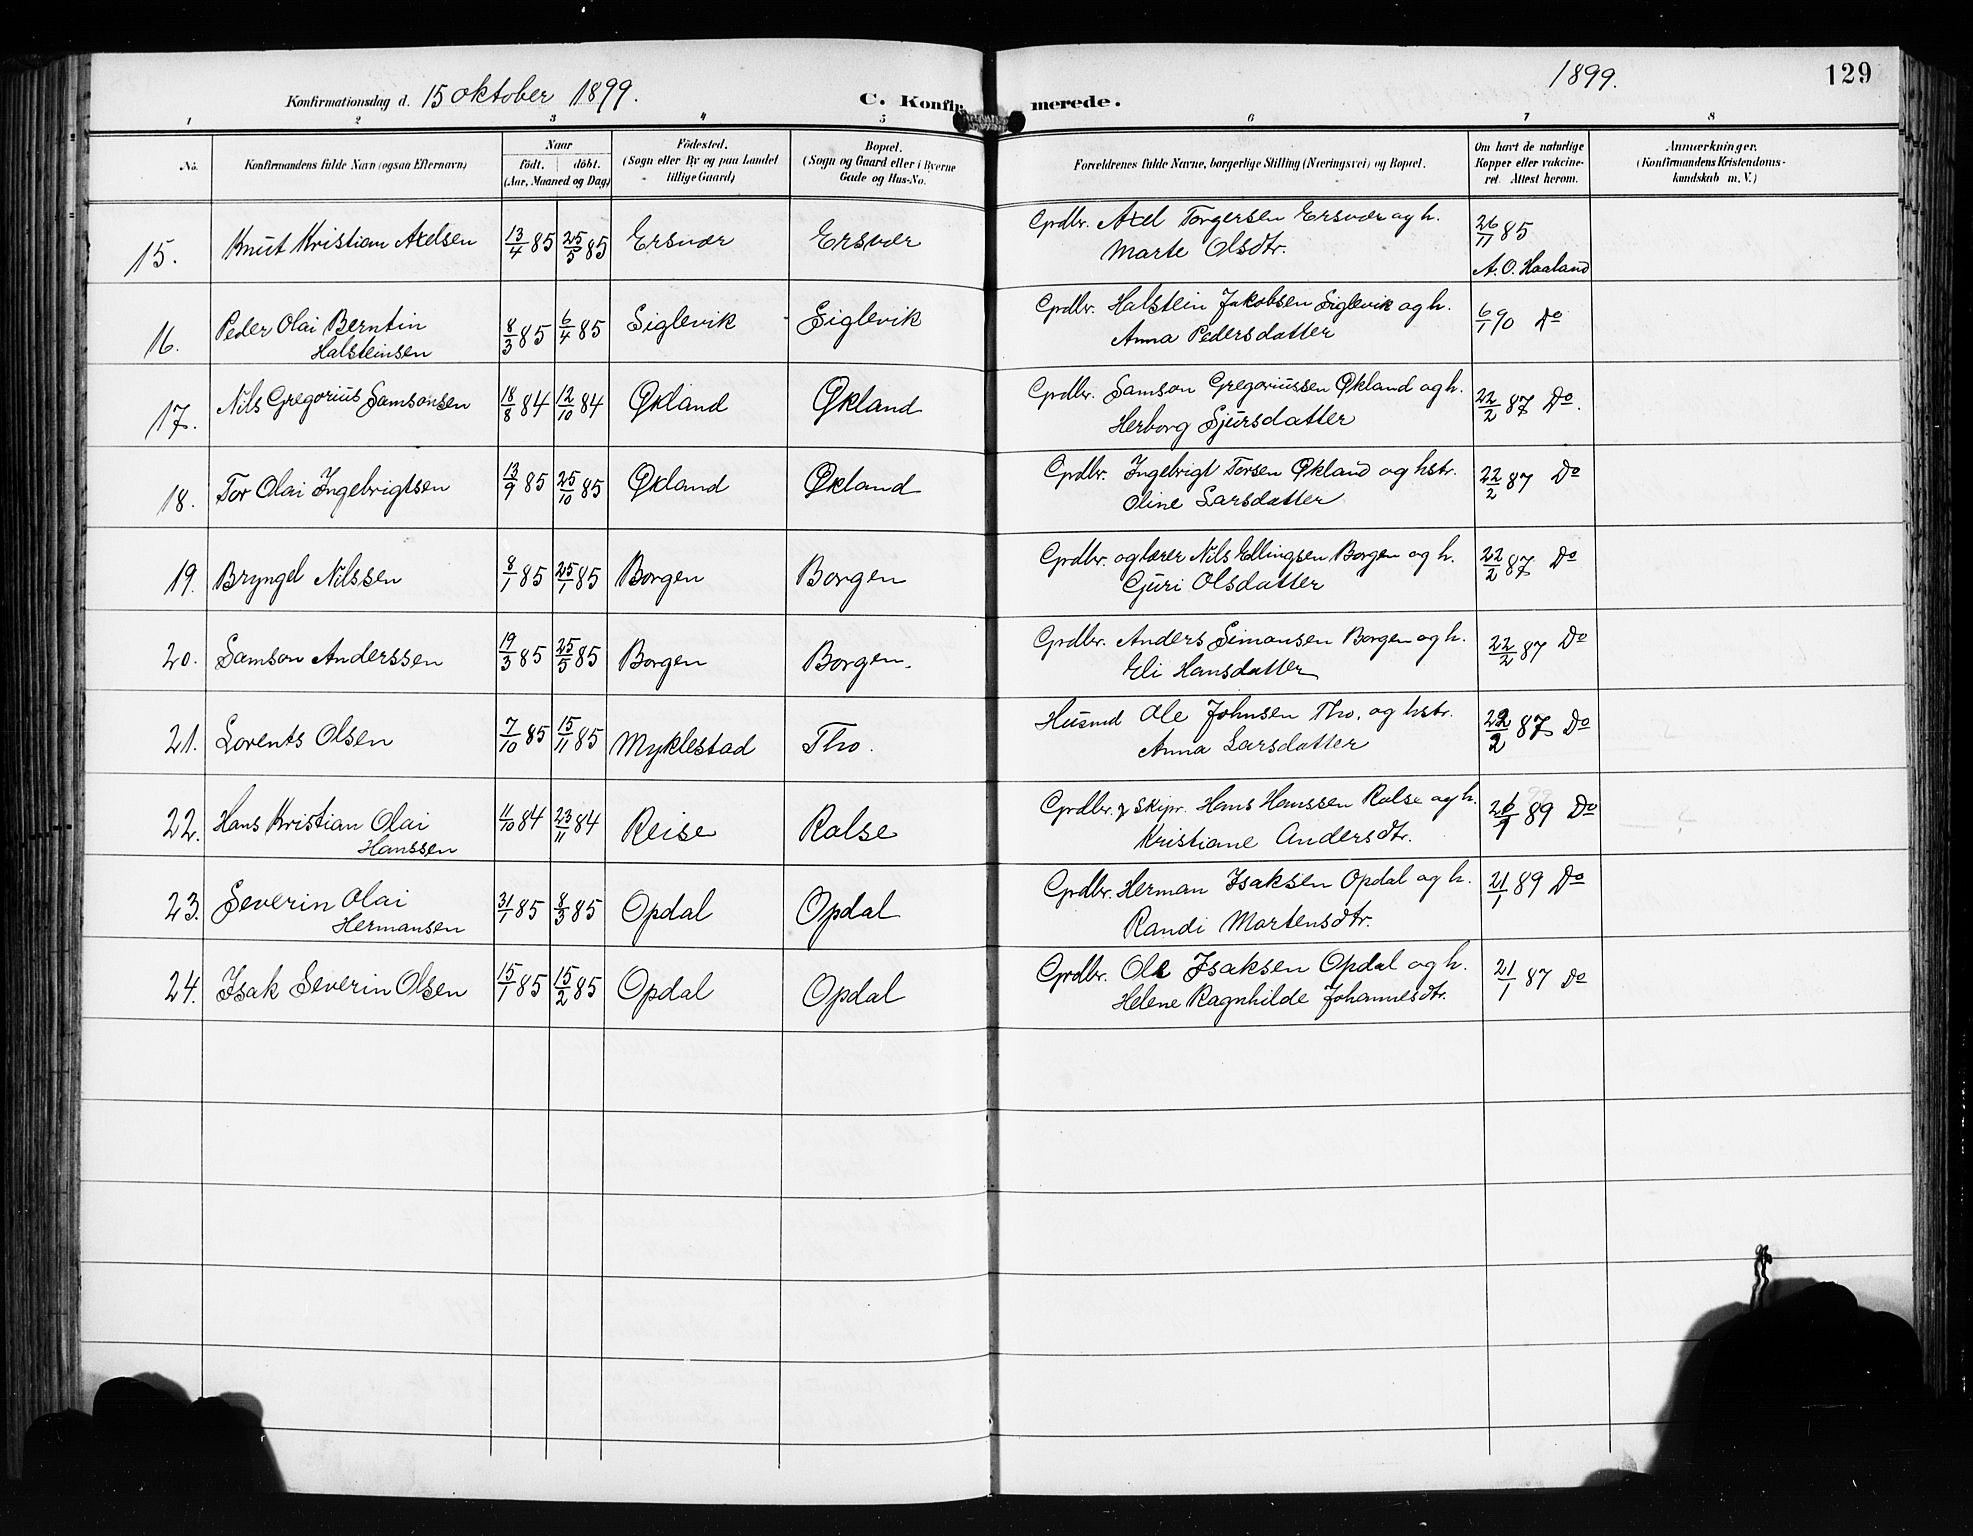 Konfirmationsdag d. 15 oktober 1899. C. Konfirmerede. 1899. 129
1 2 3 4 5 6 7 8
No. Konfirmandens fulde Navn (ogsaa Efternavn)
Naar
födt. döbt.
(Aar, Maaned og Dag)
Födested.
(Sogn eller By og paa Landet
tillige Gaard)
Bopæl.
(Sogn og Gaard eller i Byerne
Gade og Hus-No.
Forældrenes fulde Navne, borgerlige Stilling (Næringsvei) og Bopæl.
Om havt de naturlige
Kopper eller vakcine-
ret. Attest herom.
Anmærkninger.
(Konfirmandens Kristendoms-
kundskab m. V.)
15. Knut Kristian Axelsen 13/4 85 25/5 85 Ersvær Ersvær Grdbr. Axel Torgersen Ersvær og h. 26/11 85
Marte Olsdtr. A. O. Haaland
16. Peder Olai Berntin 8/3 85 6/4 85 Siglevik Siglevik Grdbr. Halstein Jakobsen Siglevik og h. 6/1 90 Do
Halsteinsen Anna Pedersdatter
17. Nils Gregorius Samsonsen 18/8 84 12/10 84 Økland Økland Grdbr. Samson Gregoriussen Økland og h. 22/2 87 Do.
Herborg Sjursdatter
18. Tor Olai Ingebrigtsen 13/9 85 25/10 85 Økland Økland Grdbr. Ingebrigt Torsen Økland og hstr. 22/2 87 Do
Oline Larsdatter
19. Bryngel Nilssen 8/1 85 25/1 85 Borgen Borgen Grdbr. og lærer Nils Ellingsen Borgen og h. 22/2 87 Do
Guri Olsdatter
20. Samson Anderssen 19/3 85 25/5 85 Borgen Borgen. Grdbr. Anders Simonsen Borgen og h. 22/2 87 Do
Eli Hansdatter
21. Lorents Olsen 7/10 85 15/11 85 Myklestad Tho. Husmd Ole Johnsen Tho. og hstr. 22/2 87 Do
Anna Larsdatter
22. Hans Kristian Olai 11/10 84 23/11 84 Reise Ralse Grdbr. & Skipr. Hans Hanssen Ralse og h. 89 Do
Hanssen Kristiane Andersdtr.
23. Severin Olai 31/1 85 8/3 85 Opdal Opdal Grdbr. Herman Isaksen Opdal og h. 21/1 89 Do
Hermansen Randi Mortensdtr.
24. Isak Severin Olsen 15/1 85 15/2 85 Opdal Opdal Grdbr. Ole Isaksen Opdal og h. 21/1 87 Do
Helene Ragnhilde Johannesdtr.